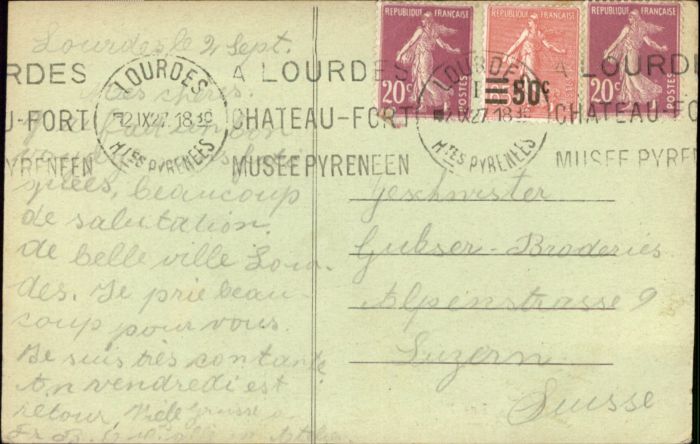 Lourdes le 2 Sept.
RÉPUBLIQUE FRANÇAISE
20c
POSTES
RÉPUBLIQUE FRANÇAISE
50c
RÉPUBLIQUE FRANÇAISE
20c
POSTES
LOURDES
12 IX 27 18 30
HTES PYRENEES
A LOURDES
CHATEAU-FORT
MUSEE PYRENEEN
LOURDES
12 IX 27 18 30
HTES PYRENEES
A LOURDES
CHATEAU-FORT
MUSEE PYRE
RDES
U-FORT
PYRENEEN
Mes chères
beaucoup
de salutation.
de belle ville Lour-
des. Je prie beau-
coup pour vous.
Je suis très contante
vendredi est
retour, Viele Grüsse
Geschwister
Gubser-Broderies
Alpenstrasse 9
Luzern
Suisse